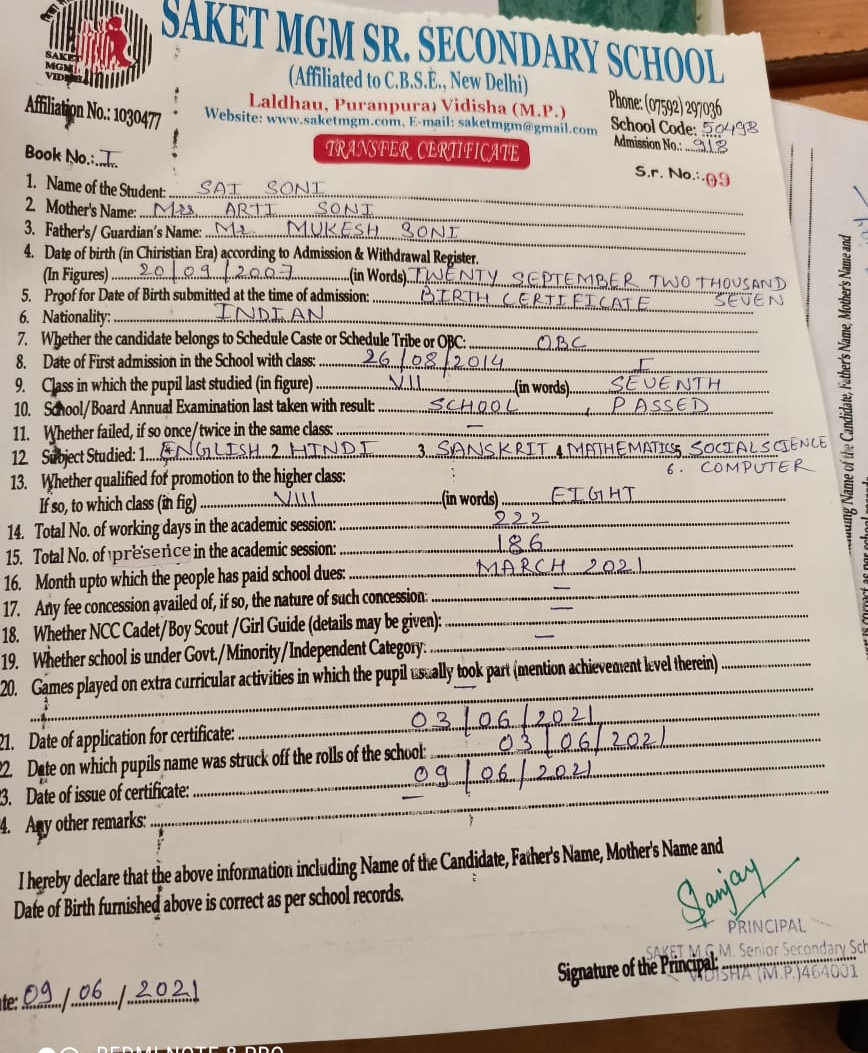 SAKET
MGM
VIDISHA
SAKET MGM SR. SECONDARY SCHOOL
(Affiliated to C.B.S.E., New Delhi)
Laldhau, Puranpura, Vidisha (M.P.)
Website: www.saketmgm.com, E-mail: saketmgm@gmail.com
Affiliation No.: 1030477
Phone: (07592) 297036
School Code: 50498
Admission No.: 918
Book No.: I
TRANSFER CERTIFICATE
S.r. No.: 09
1. Name of the Student: SAI SONI
2. Mother's Name: Mrs ARTI SONI
3. Father's/ Guardian's Name: Mr. MUKESH SONI
4. Date of birth (in Chiristian Era) according to Admission & Withdrawal Register.
(In Figures) 20/09/2007 (in Words) TWENTY SEPTEMBER TWO THOUSAND SEVEN
5. Proof for Date of Birth submitted at the time of admission: BIRTH CERTIFICATE
6. Nationality: INDIAN
7. Whether the candidate belongs to Schedule Caste or Schedule Tribe or OBC: OBC
8. Date of First admission in the School with class: 26/08/2014 I
9. Class in which the pupil last studied (in figure) VII (in words) SEVENTH
10. School/Board Annual Examination last taken with result: SCHOOL, PASSED
11. Whether failed, if so once/twice in the same class: —
12. Subject Studied: 1. ENGLISH 2 HINDI 3. SANSKRIT 4 MATHEMATICS 5 SOCIAL SCIENCE
6. COMPUTER
13. Whether qualified for promotion to the higher class:
If so, to which class (in fig) VIII (in words) EIGHT
14. Total No. of working days in the academic session: 222
15. Total No. of presence in the academic session: 186
16. Month upto which the people has paid school dues: MARCH 2021
17. Any fee concession availed of, if so, the nature of such concession: —
18. Whether NCC Cadet/Boy Scout /Girl Guide (details may be given): —
19. Whether school is under Govt./Minority/Independent Category: —
20. Games played on extra curricular activities in which the pupil usually took part (mention achievement level therein)
—
21. Date of application for certificate: 03/06/2021
22. Date on which pupils name was struck off the rolls of the school: 03/06/2021
3. Date of issue of certificate: 09/06/2021
4. Any other remarks: —
I hereby declare that the above information including Name of the Candidate, Father's Name, Mother's Name and
Date of Birth furnished above is correct as per school records.
Sanjay
PRINCIPAL
SAKET M.G.M. Senior Secondary Sch
Signature of the Principal:
VIDISHA (M.P.)464001
te: 09/06/2021
Name of the Candidate, Father's Name, Mother's Name and
REDMI NOTE 8 PRO